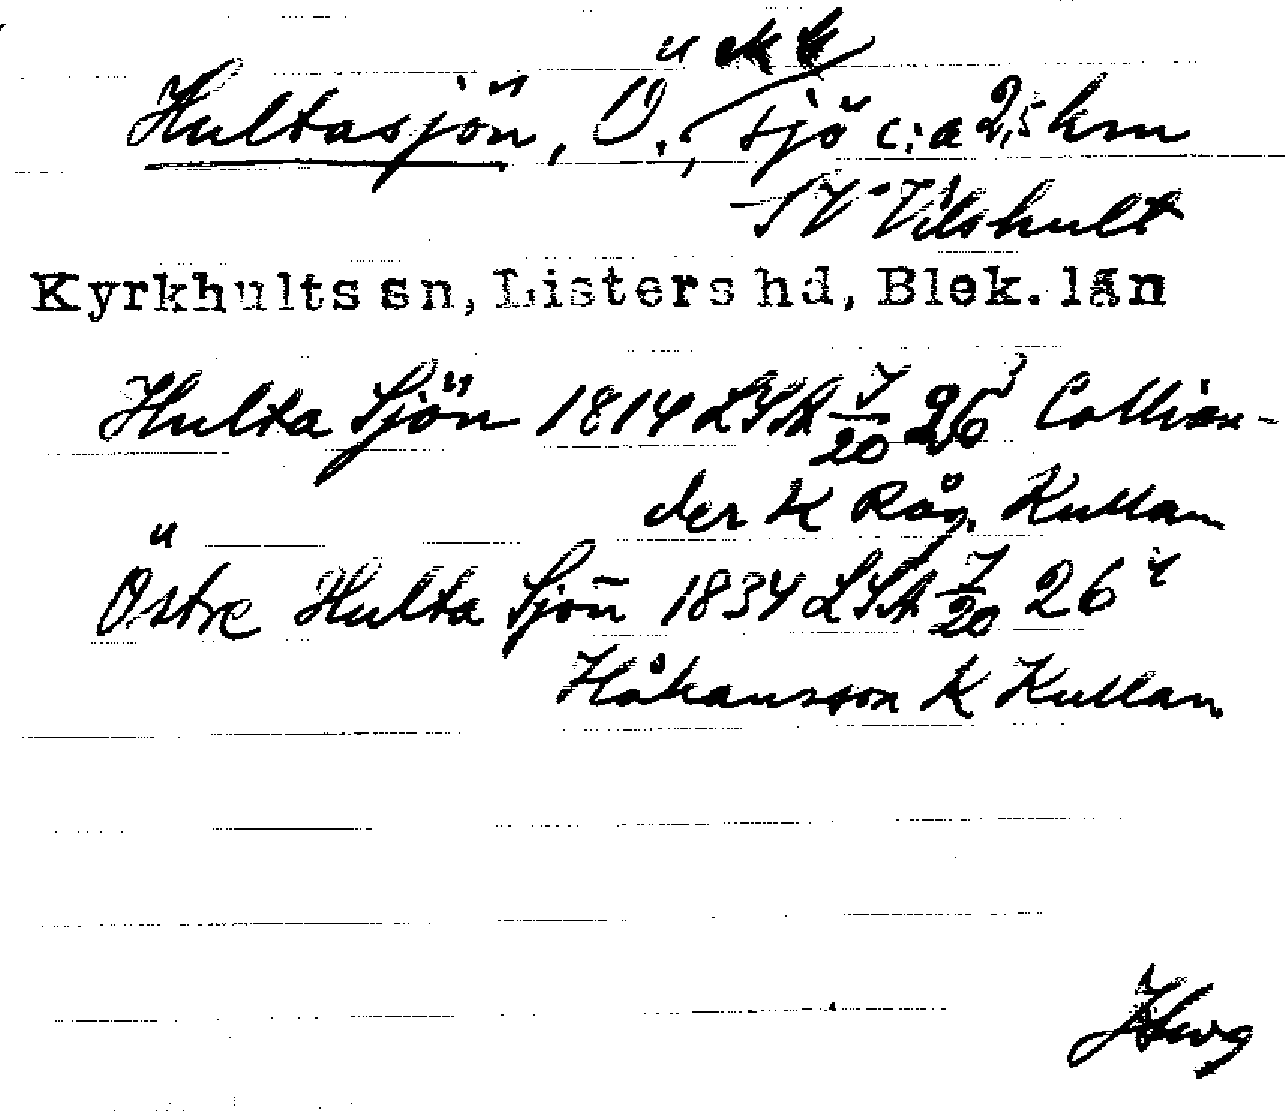 Hultasjön, Ö., sjö c:a 2,5 km
SV Vilshult
Kyrkhults sn, Listers hd, Blek. län
Hulta Sjön 1814 LSA J/20 26³ Collian-
der K Råg. Kullan
Östre Hulta Sjön 1834 LSA J/20 26⁴
Håkansson K Kullan